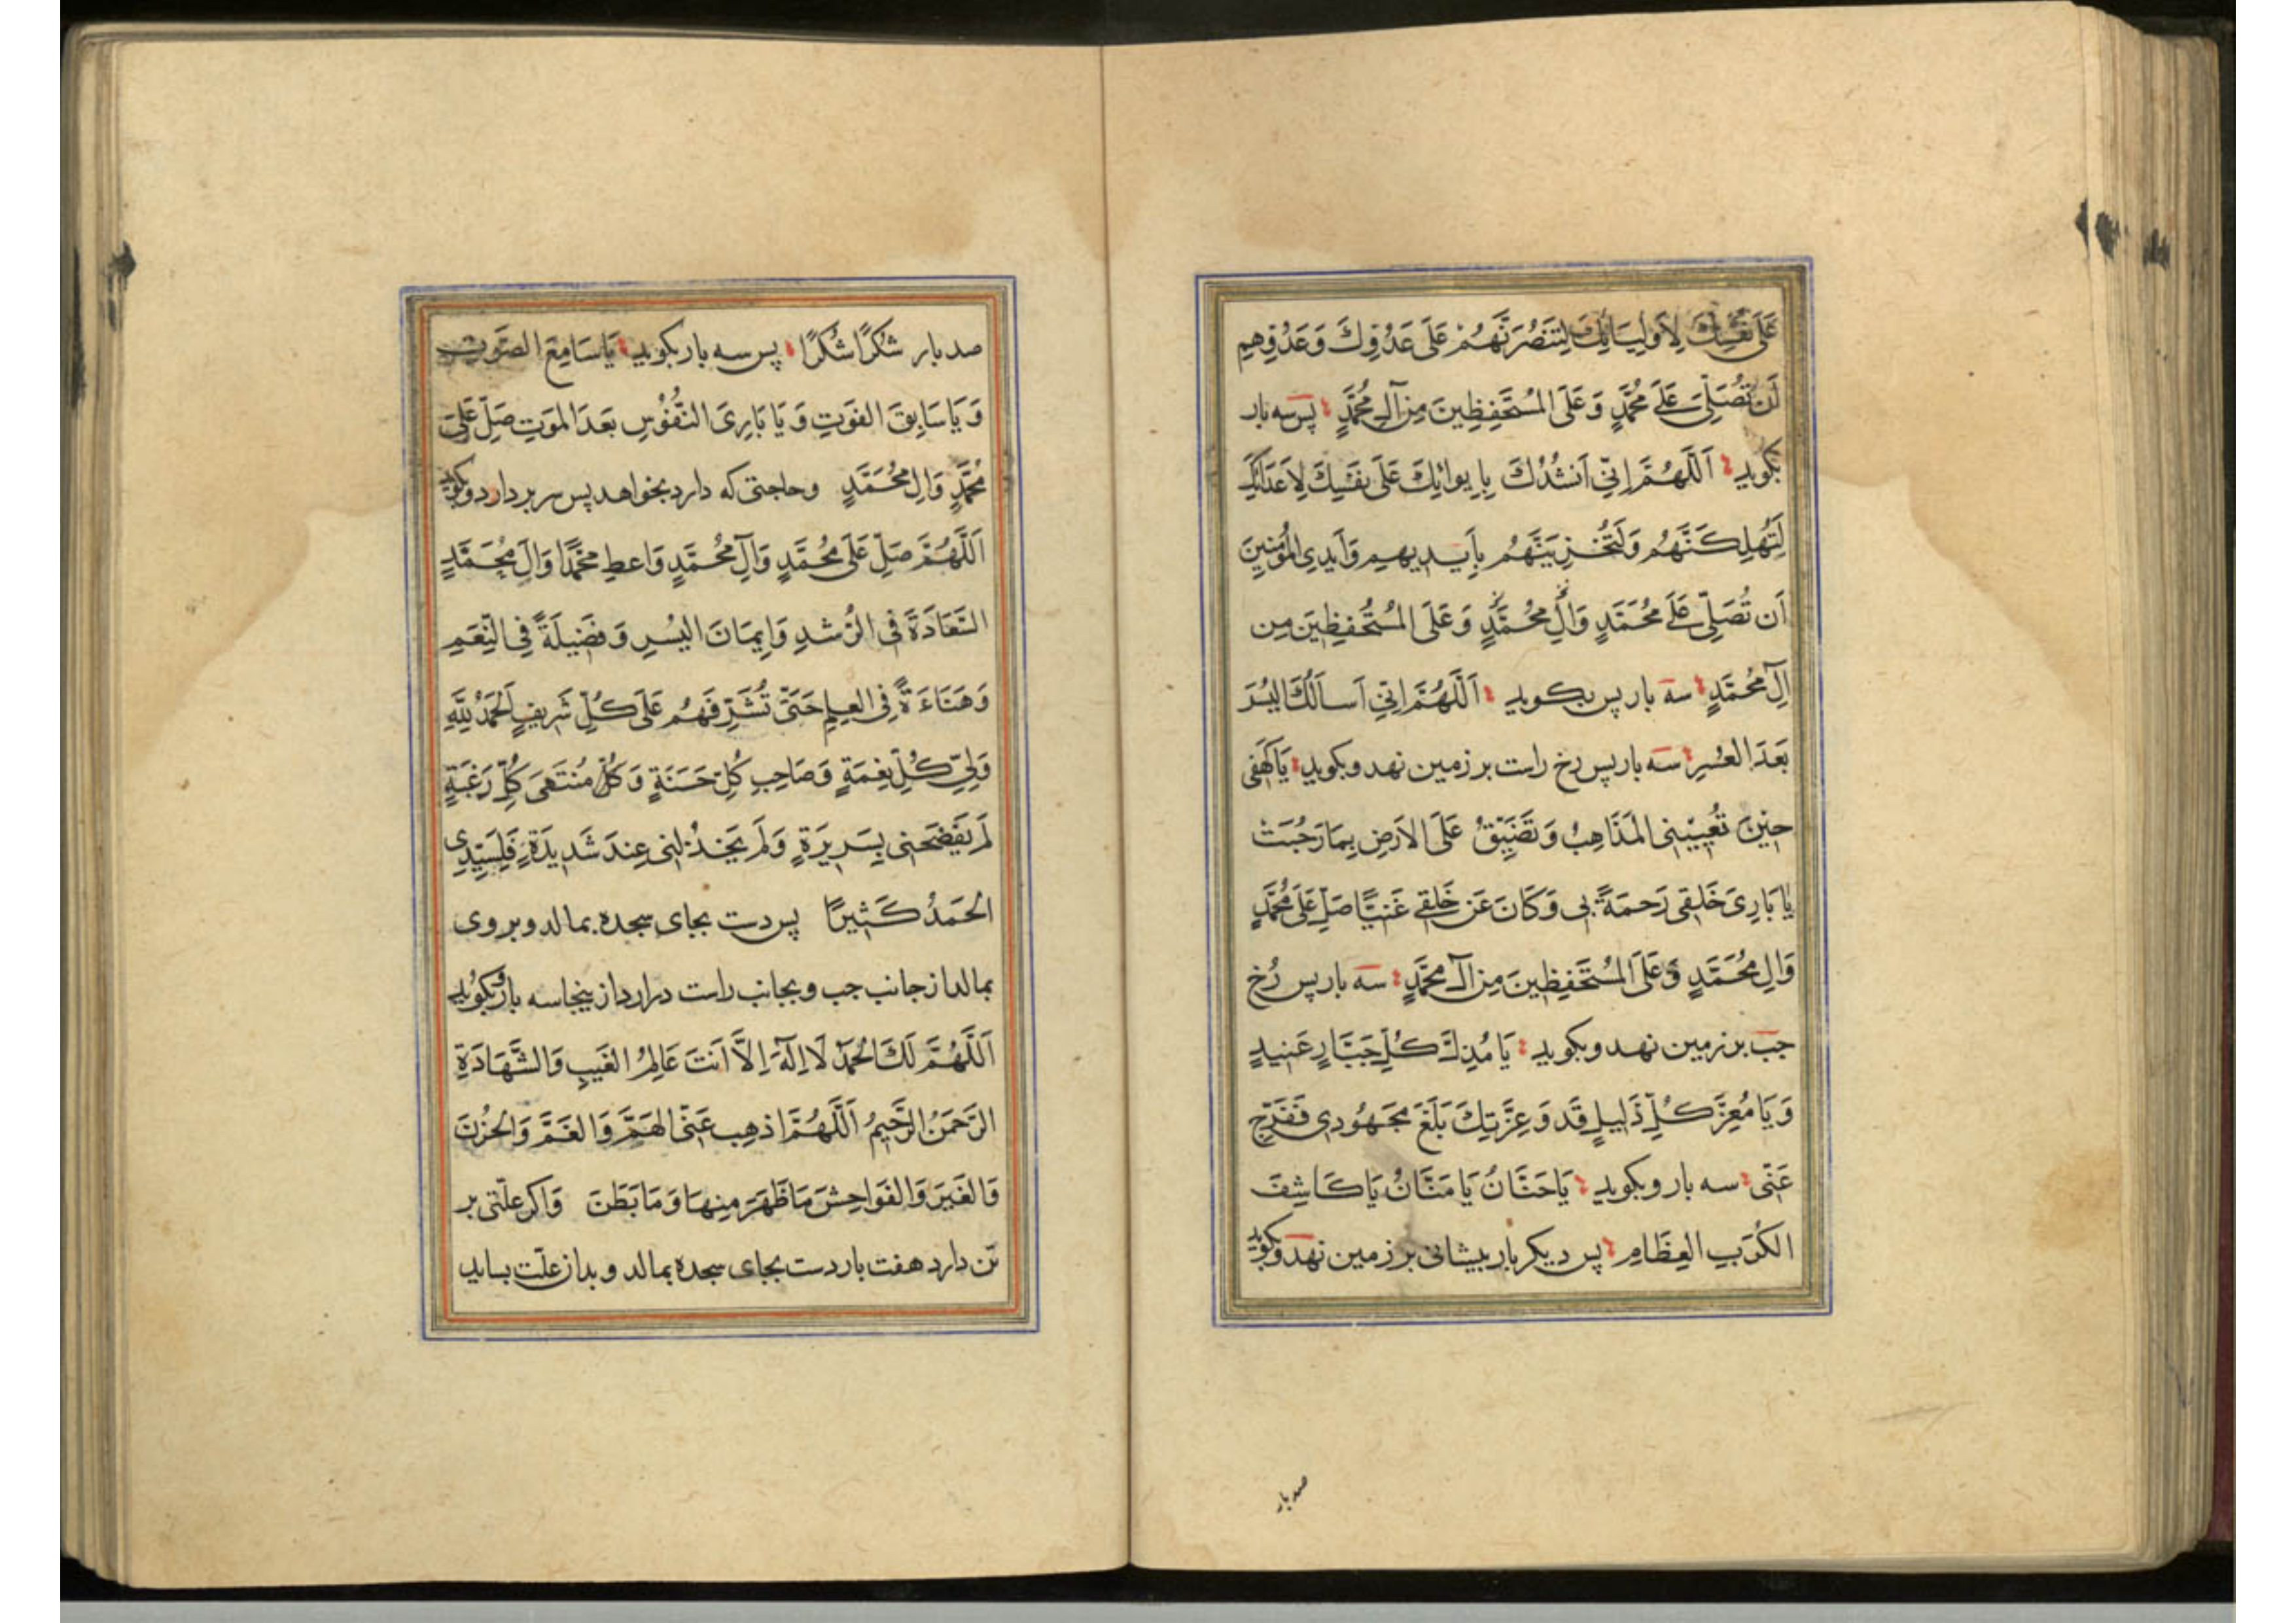 عَلَى نَفْسِكَ لِأَوْلِيَائِكَ لِتَنْصُرَنَّهُمْ عَلَى عَدُوِّكَ وَعَدُوِّهِمِ
أَنْ تُصَلِّيَ عَلَى مُحَمَّدٍ وَعَلَى المُسْتَحْفِظِينَ مِنْ آلِ مُحَمَّدٍ پس سه بار
بکوید اَللّٰهُمَّ اِنِّي اَنْشُدُكَ بِاِيوائِكَ عَلَى نَفْسِكَ لِاَعْدَائِكَ
لَتُهْلِكَنَّهُمْ وَلَتُخْزِيَنَّهُمْ بِأَيْدِيهِمْ وَأَيْدِي المُؤْمِنِينَ
أَنْ تُصَلِّيَ عَلَى مُحَمَّدٍ وَآلِ مُحَمَّدٍ وَعَلَى المُسْتَحْفِظِينَ مِن
آلِ مُحَمَّدٍ سه بار پس بکوید اَللّٰهُمَّ اِنِّي اَسْاَلُكَ اليُسْرَ
بَعْدَ العُسْرِ سه بار پس رخ راست بر زمین نهد و بکوید يَا كَهْفِي
حِينَ تُعْيِينِي المَذَاهِبُ وَتَضِيقُ عَلَى الاَرْضِ بِمَا رَحُبَتْ
يَا بَارِئَ خَلْقِي رَحْمَةً بِي وَكَانَ عَنْ خَلْقِي غَنِيًّا صَلِّ عَلَى مُحَمَّدٍ
وَآلِ مُحَمَّدٍ وَعَلَى المُسْتَحْفِظِينَ مِنْ آلِ مُحَمَّدٍ سه بار پس رُخ
چپ بر زمین نهد و بکوید يَا مُذِلَّ كُلِّ جَبَّارٍ عَنِيدٍ
وَيَا مُعِزَّ كُلِّ ذَلِيلٍ قَدْ وَعِزَّتِكَ بَلَغَ مَجْهُودِي فَفَرِّجْ
عَنِّي سه بار و بکوید يَا حَنَّانُ يَا مَنَّانُ يَا كَاشِفَ
الكُرَبِ العِظَامِ پس دیکر بار پیشانی بر زمین نهد و بکوید
صد بار
صد بار شُكْرًا شُكْرًا پس سه بار بکوید يَا سَامِعَ الصَّوْتِ
وَيَا سَابِقَ الفَوْتِ وَيَا بَارِئَ النُّفُوسِ بَعْدَ المَوْتِ صَلِّ عَلَى
مُحَمَّدٍ وَآلِ مُحَمَّدٍ وحاجتی که دارد بخواهد پس سر بردارد و بکوید
اَللّٰهُمَّ صَلِّ عَلَى مُحَمَّدٍ وَآلِ مُحَمَّدٍ وَاَعْطِ مُحَمَّدًا وَآلَ مُحَمَّدٍ
السَّعَادَةَ فِي الرُّشْدِ وَاِيمَانَ اليُسْرِ وَفَضِيلَةً فِي النِّعَمِ
وَهَنَاءَةً فِي العِلْمِ حَتَّى تُشَرِّفَهُمْ عَلَى كُلِّ شَرِيفٍ اَلْحَمْدُ لِلّٰهِ
وَلِيِّ كُلِّ نِعْمَةٍ وَصَاحِبِ كُلِّ حَسَنَةٍ وَكُلِّ مُنْتَهَى كُلِّ رَغْبَةٍ
لَمْ يَفْضَحْنِي بِسَرِيرَةٍ وَلَمْ يَخْذُلْنِي عِنْدَ شَدِيدَةٍ فَلِسَيِّدِي
الحَمْدُ كَثِيرًا پس دست بجای سجده بمالد و بر روی
بمالد از جانب چپ و بجانب راست درارد از پنجا سه بار و بکوید
اَللّٰهُمَّ لَكَ الحَمْدُ لَا اِلٰهَ اِلَّا اَنْتَ عَالِمُ الغَيْبِ وَالشَّهَادَةِ
الرَّحْمٰنُ الرَّحِيمُ اَللّٰهُمَّ اَذْهِبْ عَنِّي الهَمَّ وَالغَمَّ وَالحُزْنَ
وَالغَيْرَ وَالفَوَاحِشَ مَا ظَهَرَ مِنْهَا وَمَا بَطَنَ وَاکر علّتی بر
تن دارد هفت بار دست بجای سجده بمالد و بدان علّت بساید